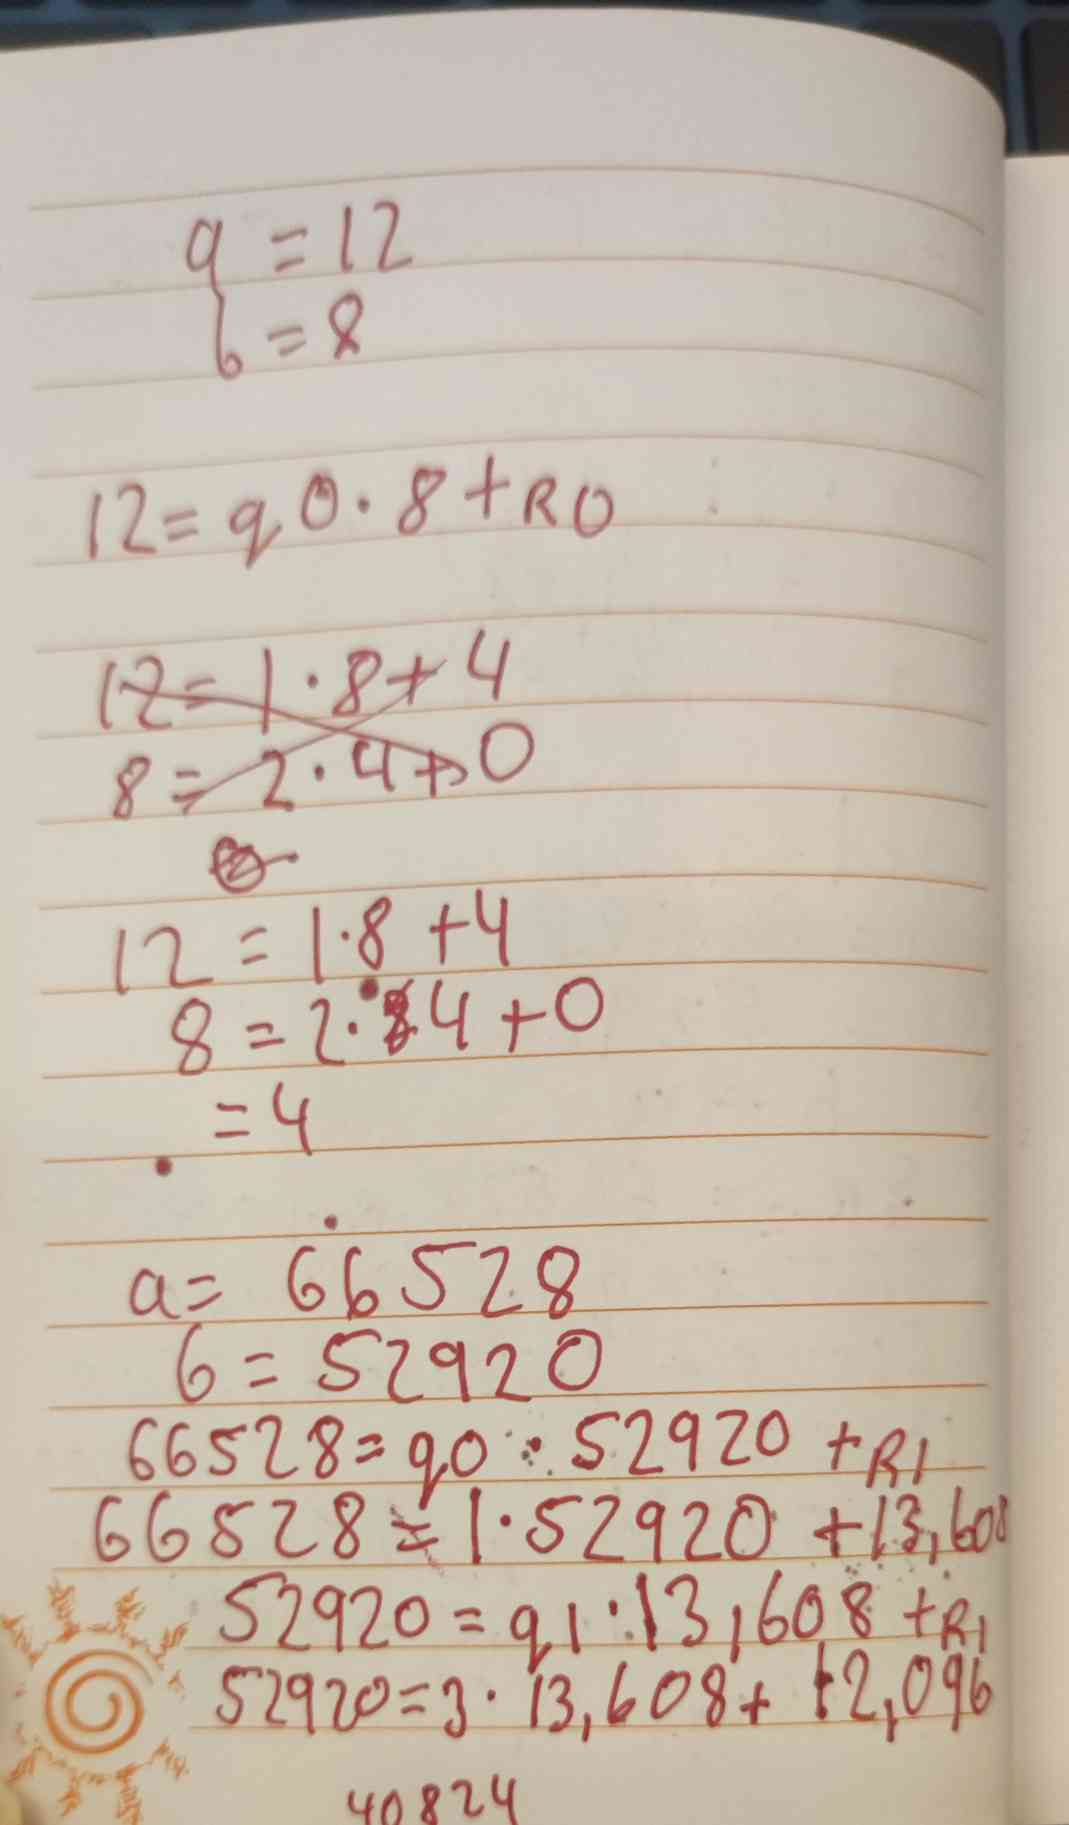 a = 12
b = 8
12 = q0 · 8 + R0
12 = 1 · 8 + 4
8 = 2 · 4 + 0
12 = 1 · 8 + 4
8 = 2 · 4 + 0
= 4
a = 66528
b = 52920
66528 = q0 · 52920 + R1
66528 = 1 · 52920 + 13,608
52920 = q1 · 13,608 + R1
52920 = 3 · 13,608 + 12,096
40824